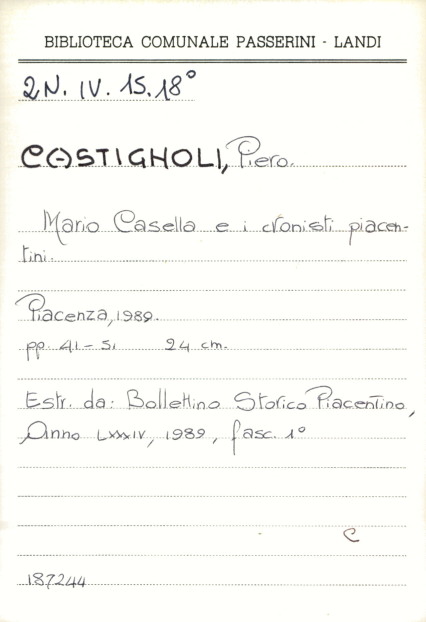 BIBLIOTECA COMUNALE PASSERINI - LANDI
2N. IV. 15.18°
CASTIGNOLI, Piero.
Mario Casella e i cronisti piacen-
tini.
Piacenza, 1989.
pp. 41-51 24 cm.
Estr. da: Bollettino Storico Piacentino,
Anno LXXXIV, 1989, fasc. 1°
C
187244